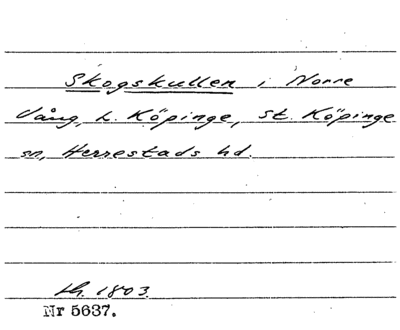 Skogskullen i Norre
Vång, L. Köpinge, St. Köpinge
sn, Herrestads hd.
lh. 1803.
Nr 5637.